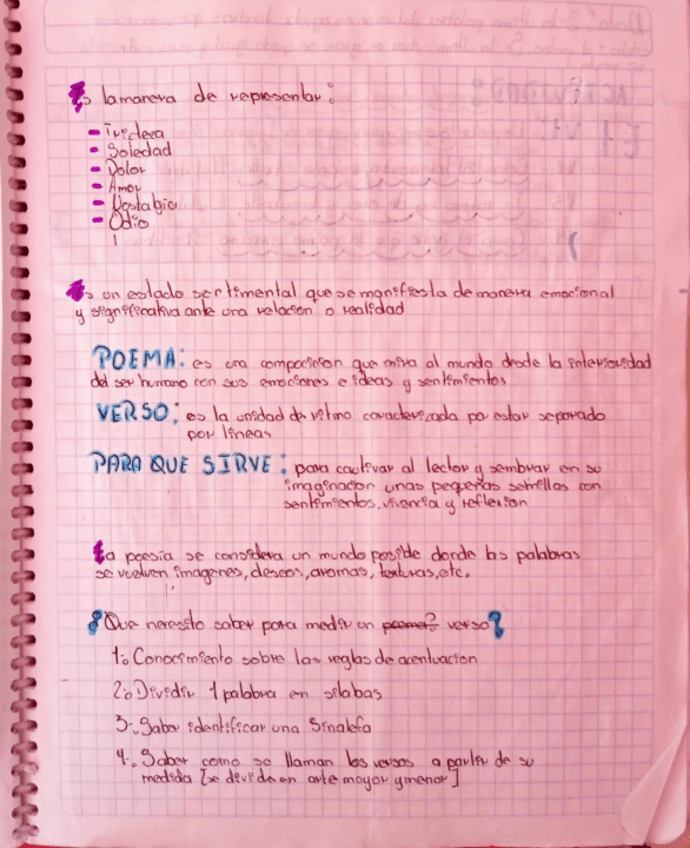 Es la manera de representar:
- Tristeza
- Soledad
- Dolor
- Amor
- Nostalgia
- Odio
Es un estado sentimental que se manifiesta de manera emocional
y significativa ante una relacion o realidad
POEMA: es una composicion que mira al mundo desde la interioridad
del ser humano con sus emociones e ideas y sentimientos
VERSO: es la unidad de ritmo caracterizada por estar separado
por lineas
PARA QUE SIRVE: para cautivar al lector y sembrar en su
imaginacion unas pequeñas semillas con
sentimientos, vivencia y reflexion
La poesia se considera un mundo posible donde las palabras
se vuelven imagenes, deseos, aromas, texturas, etc.
¿Que necesito saber para medir un poema? verso?
1. Conocimiento sobre las reglas de acentuacion
2. Dividir 1 palabra en silabas
3. Saber identificar una Sinalefa
4. Saber como se llaman los versos a partir de su
medida [se divide en arte mayor y menor]